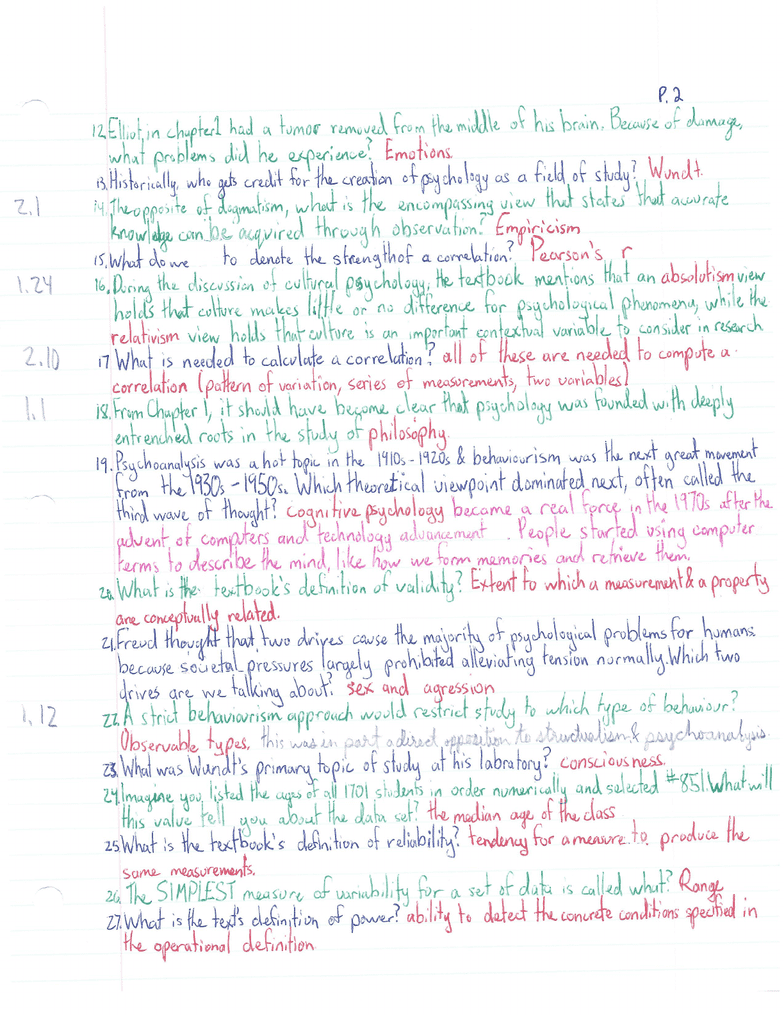 P. 2
12. Elliot, in chapter 1 had a tumor removed from the middle of his brain. Because of damage,
what problems did he experience? Emotions.
13. Historically, who gets credit for the creation of psychology as a field of study? Wundt.
2.1 14. The opposite of dogmatism, what is the encompassing view that states that accurate
knowledge can be acquired through observation? Empiricism
15. What do we to denote the strength of a correlation? Pearson's r
1.24 16. During the discussion of cultural psychology, the textbook mentions that an absolutism view
holds that culture makes little or no difference for psychological phenomena, while the
relativism view holds that culture is an important contextual variable to consider in research
2.10 17. What is needed to calculate a correlation? all of these are needed to compute a
correlation (pattern of variation, series of measurements, two variables)
1.1 18. From Chapter 1, it should have become clear that psychology was founded with deeply
entrenched roots in the study of philosophy.
19. Psychoanalysis was a hot topic in the 1910s-1920s & behaviourism was the next great movement
from the 1930s-1950s. Which theoretical viewpoint dominated next, often called the
third wave of thought? Cognitive psychology became a real force in the 1970s after the
advent of computers and technology advancement. People started using computer
terms to describe the mind, like how we form memories and retrieve them.
20. What is the textbook's definition of validity? Extent to which a measurement & a property
are conceptually related.
21. Freud thought that two drives cause the majority of psychological problems for humans
because societal pressures largely prohibited alleviating tension normally. Which two
drives are we talking about? sex and agression
1.12 22. A strict behaviourism approach would restrict study to which type of behaviour?
Observable types. this was in part a direct opposition to structualism & psychoanalysis.
23. What was Wundt's primary topic of study at his labratory? consciousness.
24. Imagine you listed the ages of all 1701 students in order numerically and selected #851. What will
this value tell you about the data set? the median age of the class
25. What is the textbook's definition of reliability? tendency for a measure to produce the
same measurements.
26. The SIMPLEST measure of variability for a set of data is called what? Range
27. What is the text's definition of power? ability to detect the concrete conditions specified in
the operational definition